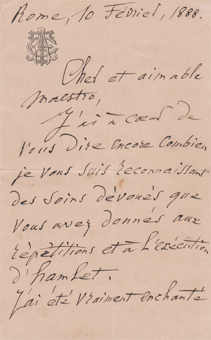 Rome, 10 Février, 1888.
Cher et aimable
maestro,
J'ai à cœur de
vous dire encore combien
je vous suis reconnaissant
des soins dévoués que
vous avez donnés aux
répétitions et à l'exécution
d'hamlet.
J'ai été vraiment enchanté